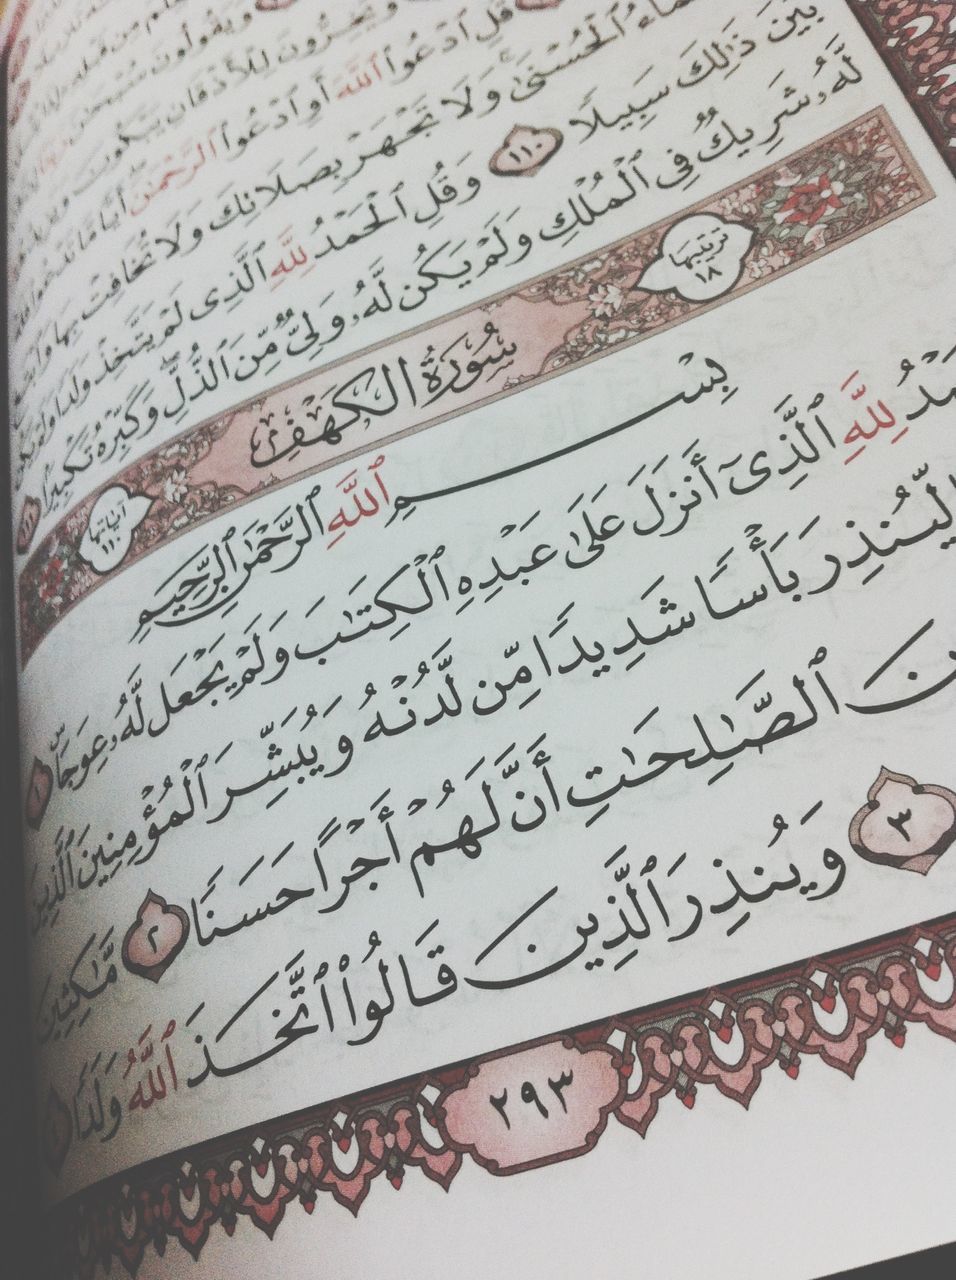 قُلِ ٱدْعُوا۟ ٱللَّهَ أَوِ ٱدْعُوا۟ ٱلرَّحْمَٰنَ أَيًّا مَّا تَدْعُوا۟
ٱلْحُسْنَىٰ وَلَا تَجْهَرْ بِصَلَاتِكَ وَلَا تُخَافِتْ بِهَا
بَيْنَ ذَٰلِكَ سَبِيلًا ١١٠ وَقُلِ ٱلْحَمْدُ لِلَّهِ ٱلَّذِى لَمْ يَتَّخِذْ وَلَدًا
لَّهُۥ شَرِيكٌ فِى ٱلْمُلْكِ وَلَمْ يَكُن لَّهُۥ وَلِىٌّ مِّنَ ٱلذُّلِّ ۖ وَكَبِّرْهُ تَكْبِيرًۢا ١١١
ترتيبها ١٨ سُورَةُ الكَهْفِ آياتها ١١٠
بِسْمِ ٱللَّهِ ٱلرَّحْمَٰنِ ٱلرَّحِيمِ
لِلَّهِ ٱلَّذِىٓ أَنزَلَ عَلَىٰ عَبْدِهِ ٱلْكِتَٰبَ وَلَمْ يَجْعَل لَّهُۥ عِوَجَا ۜ ١
لِّيُنذِرَ بَأْسًا شَدِيدًا مِّن لَّدُنْهُ وَيُبَشِّرَ ٱلْمُؤْمِنِينَ ٱلَّذِينَ
ٱلصَّٰلِحَٰتِ أَنَّ لَهُمْ أَجْرًا حَسَنًا ٢ مَّٰكِثِينَ
٣ وَيُنذِرَ ٱلَّذِينَ قَالُوا۟ ٱتَّخَذَ ٱللَّهُ وَلَدًا ٤
٢٩٣